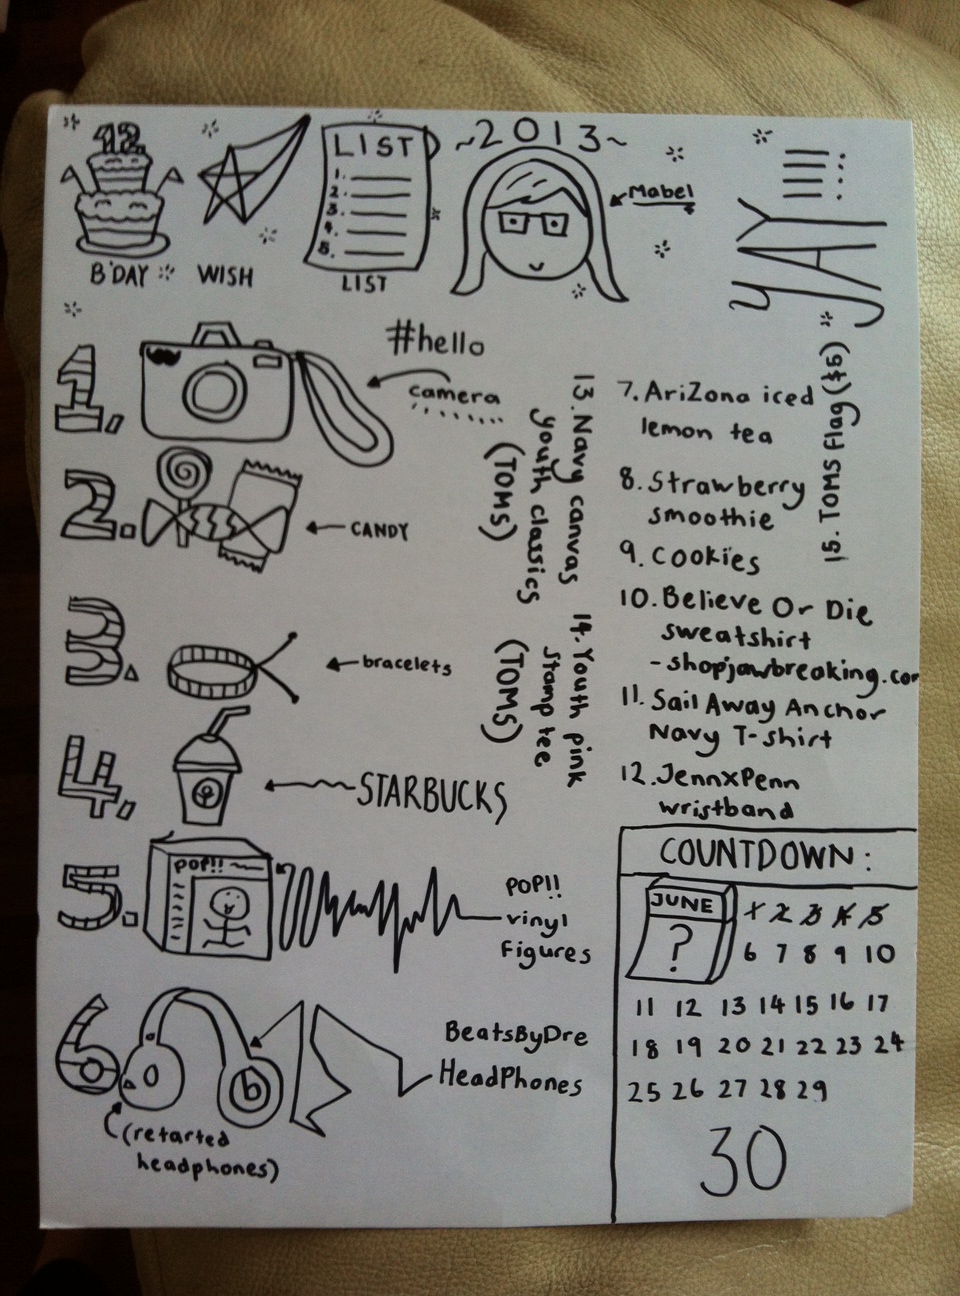 12
B'DAY
WISH
LIST
1.
2.
3.
4.
5.
LIST
~2013~
Mabel
YAY!!!!
1.
#hello
camera
2.
CANDY
3.
bracelets
4.
STARBUCKS
5.
POP!!
POP!!
vinyl
Figures
6.
b
BeatsByDre
HeadPhones
(retarted
headphones)
13. Navy canvas
youth classics
(TOMS)
14. Youth pink
stamp tee
(TOMS)
7. AriZona iced
lemon tea
8. Strawberry
smoothie
9. Cookies
10. Believe Or Die
sweatshirt
-shopjawbreaking.com
11. Sail Away Anchor
Navy T-shirt
12. JennxPenn
wristband
15. TOMS Flag ($5)
COUNTDOWN:
JUNE
?
1 2 3 4 5
6 7 8 9 10
11 12 13 14 15 16 17
18 19 20 21 22 23 24
25 26 27 28 29
30